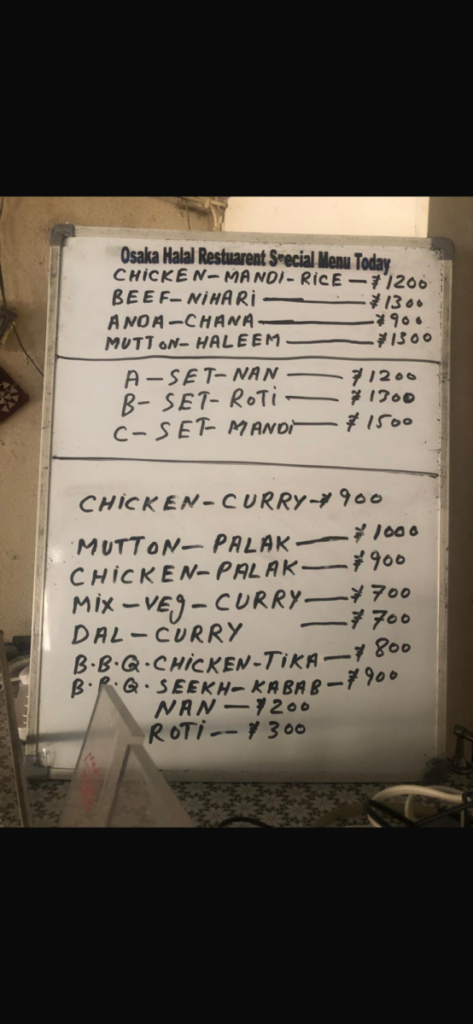 Osaka Halal Restuarent Special Menu Today
CHICKEN-MANDI-RICE — ¥1200
BEEF-NIHARI — ¥1300
ANDA-CHANA — ¥900
MUTTON-HALEEM — ¥1300
A-SET-NAN — ¥1200
B-SET-ROTI — ¥1300
C-SET MANDI — ¥1500
CHICKEN-CURRY-¥900
MUTTON-PALAK — ¥1000
CHICKEN-PALAK — ¥900
MIX-VEG-CURRY — ¥700
DAL-CURRY — ¥700
B.B.Q.CHICKEN-TIKA — ¥800
B.B.Q.SEEKH-KABAB-¥900
NAN — ¥200
ROTI — ¥300